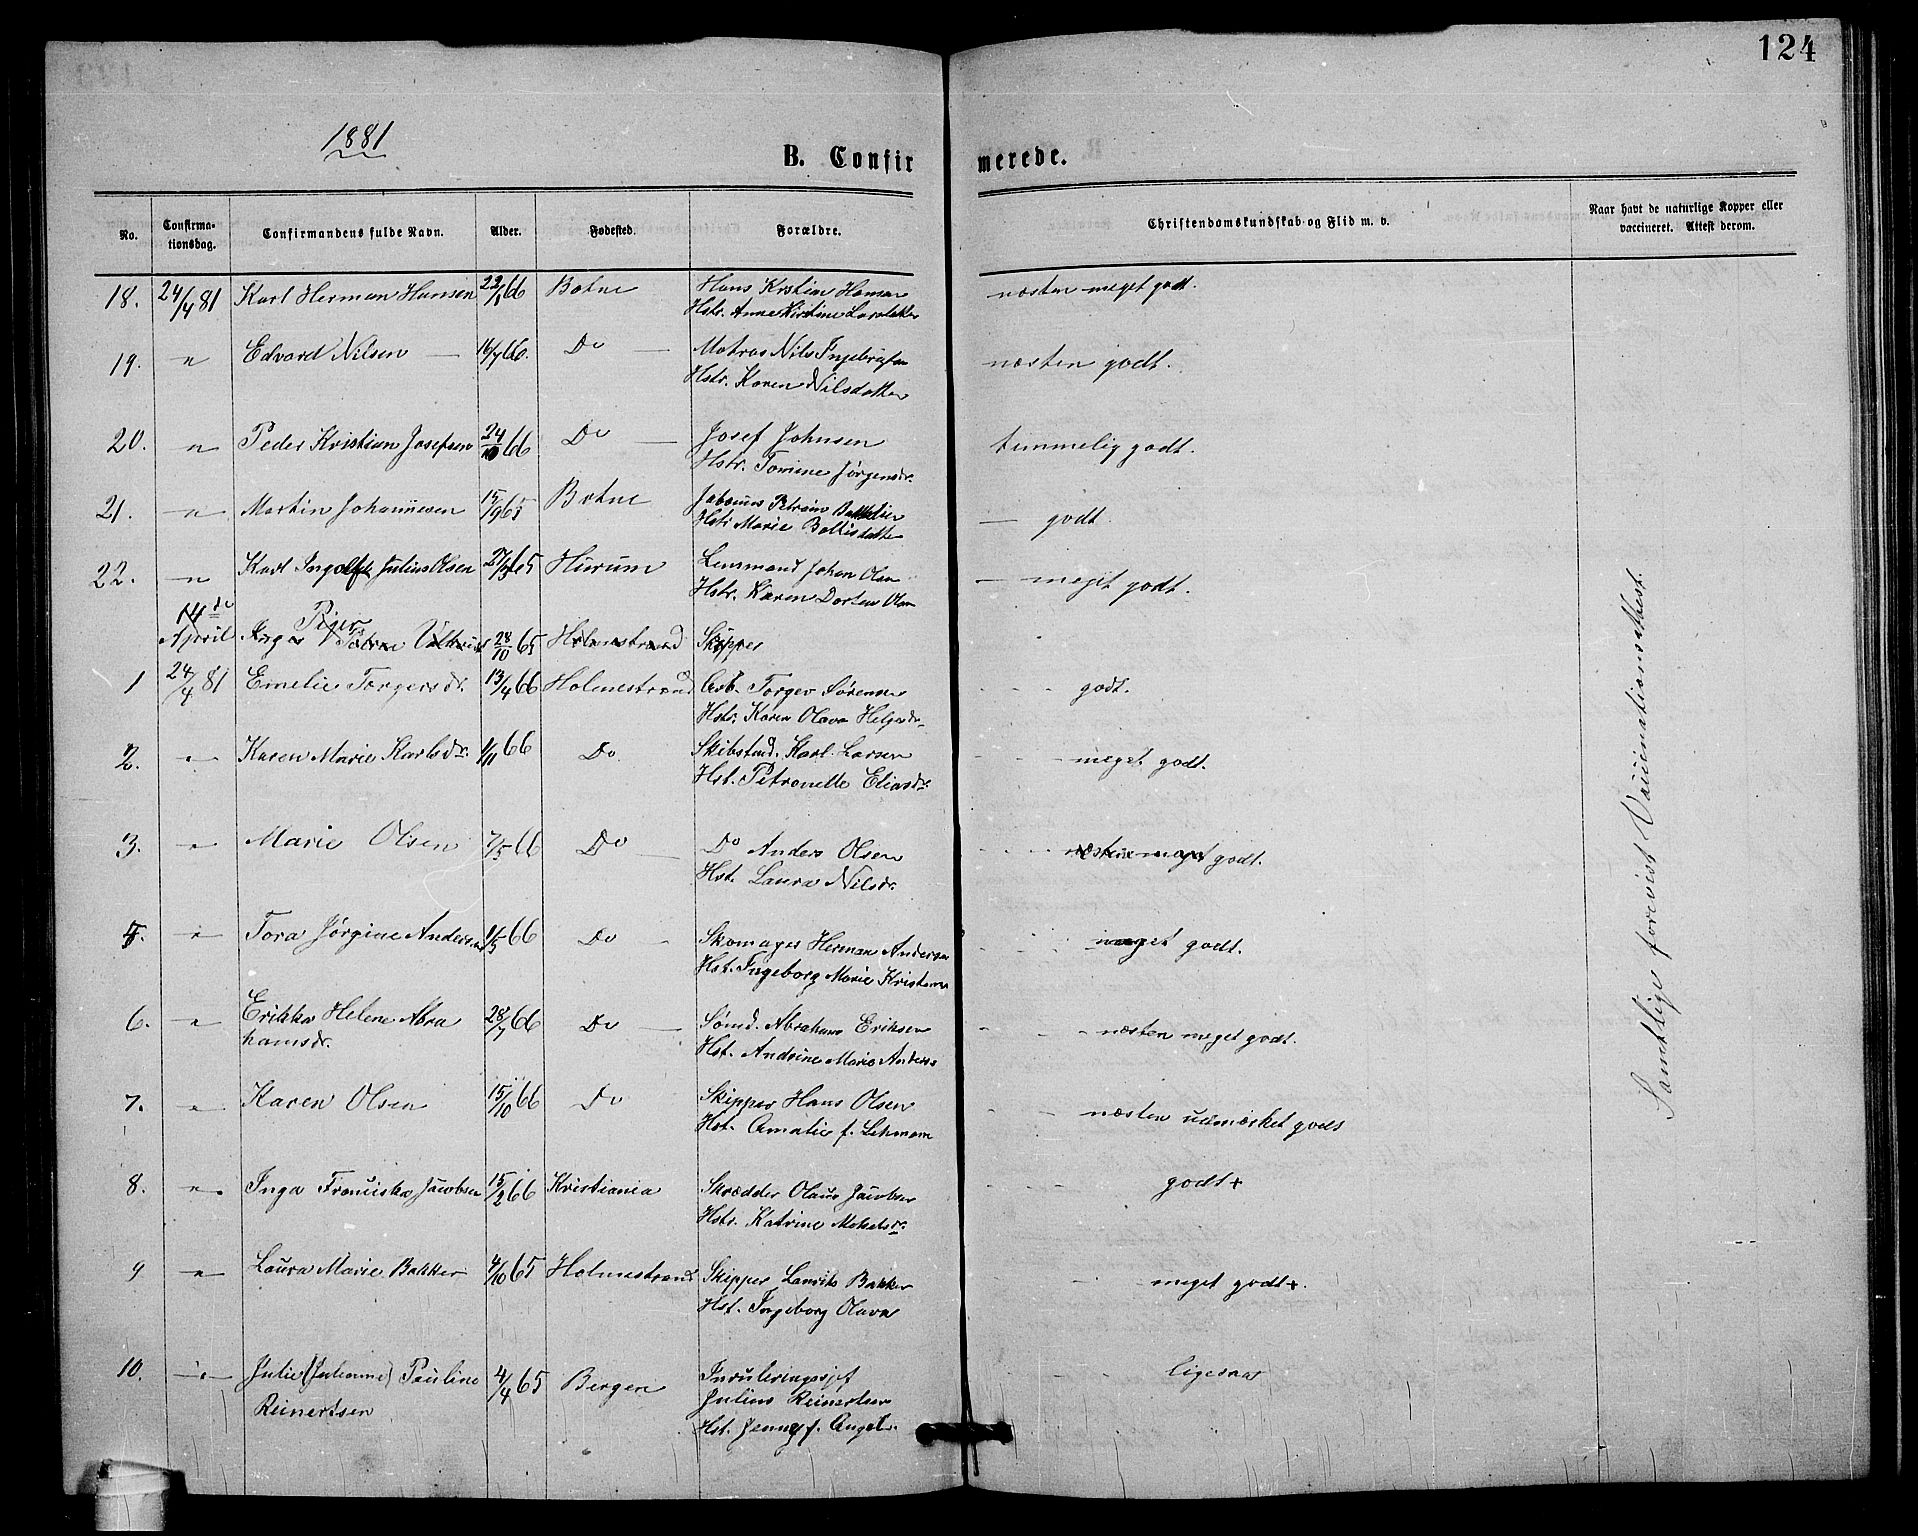 124
1881
B. Confirmerede.
No.
Confirma-
tionsdag.
Confirmandens fulde Navn.
Alder.
Fødested.
Forældre.
Christendomskundskab og Flid m. v.
Naar havt de naturlige Kopper eller
vaccineret. Attest derom.
18. 24/4 81 Karl Herman Hansen 22/1 66 Botne Hans Kristian Hansen næsten meget godt.
Hstr. Anne Kirstine Larsdatter
19. " Edvard Nilsen 16/7 66. Do Matros Nils Ingebrigtsen næsten godt.
Hstr. Karen Nilsdatter
20. " Peder Kristian Josefsen 24/10 66 Do Josef Johnsen temmelig godt.
Hstr. Tomine Jørgensdr.
21. " Martin Johannesen 15/9 65 Botne Johannes godt.
Hstr Marie
22. " Karl Ingolf Julius Olsen 27/3 65 Hurum Lensmand Johan Olsen meget godt.
Hstr. Karen Dortea Olsen
Piger
14de April Inger Petra 28/10 65 Holmestrand Skipper
1 24/4 81 Emelie Torgersdr. 13/4 66 Holmestrand Arb. Torger Sørensen godt.
Hstr. Karen Olava Helgesdr.
2. " Karen Marie Karlsdr. 1/11 66 Do. Skibstmd. Karl Larsen meget godt.
Hst. Petronelle Eliasdr.
3. " Marie Olsen 7/5 66 Do Do Anders Olsen næsten meget godt.
Hst. Laura Nilsdr.
5. " Tora Jørgine Andersen 11/5 66 Do Skomager Herman Andersen meget godt.
Hst. Ingeborg Marie Kristense
6. " Erikka Helene Abra 28/7 66 Do Sømd. Abraham Eriksen næsten meget godt.
hamsdr. Hst. Andrine Marie Anders
7. " Karen Olsen 15/10 66 Do Skipper Hans Olsen næsten udmærket godt
Hst. Amalie f. Lehmann
8. " Inga Franciska Jacobsen 15/2 66 Kristiania Skrædder Olaus Jacobsen godt+
Hstr. Katrine
9 " Laura Marie Bakker 4/10 65 Holmestrand Skipper Lauritz Bakker meget godt+.
Hst. Ingeborg Olava
10. " Julie (Julianne) Pauline 4/4 65 Bergen ligesaa
Reinertsen Julius Reinertsen
Hst. Jenny f. Angel.
Samtlige forevist Vaccinationsattest.